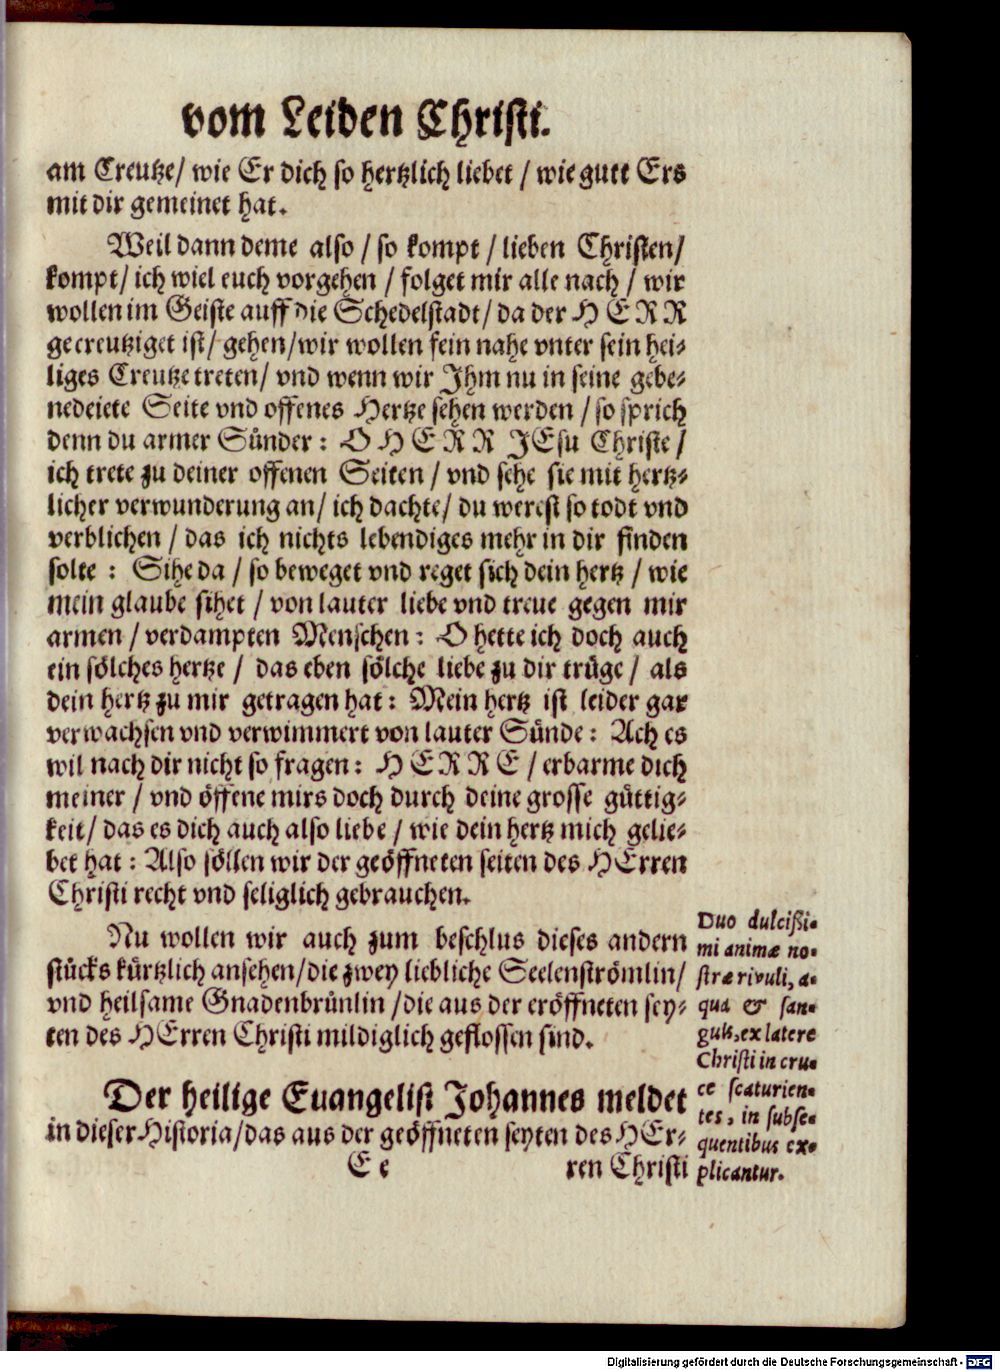 vom Leiden Christi.
am Creutze/ wie Er dich so hertzlich liebet / wie gutt Ers
mit dir gemeinet hat.
Weil dann deme also / so kompt / lieben Christen/
kompt/ ich wiel euch vorgehen / folget mir alle nach / wir
wollen im Geiste auff die Schedelstadt/ da der HERR
gecreutziget ist/ gehen/wir wollen fein nahe vnter sein hei-
liges Creutze treten/ vnd wenn wir Jhm nu in seine gebe-
nedeiete Seite vnd offenes Hertze sehen werden / so sprich
denn du armer Sünder: O HERR JEsu Christe /
ich trete zu deiner offenen Seiten / vnd sehe sie mit hertz-
licher verwunderung an/ ich dachte/ du werest so todt vnd
verblichen / das ich nichts lebendiges mehr in dir finden
solte : Sihe da / so beweget vnd reget sich dein hertz / wie
mein glaube sihet / von lauter liebe vnd treue gegen mir
armen / verdampten Menschen : O hette ich doch auch
ein sölches hertze / das eben sölche liebe zu dir trüge / als
dein hertz zu mir getragen hat : Mein hertz ist leider gar
verwachsen vnd verwimmert von lauter Sünde : Ach es
wil nach dir nicht so fragen : HERRE / erbarme dich
meiner / vnd öffene mirs doch durch deine grosse güttig-
keit/ das es dich auch also liebe / wie dein hertz mich gelie-
bet hat : Also söllen wir der geöffneten seiten des HErren
Christi recht vnd seliglich gebrauchen.
Nu wollen wir auch zum beschlus dieses andern
stücks kürtzlich ansehen/die zwey liebliche Seelenströmlin/
vnd heilsame Gnadenbrünlin /die aus der eröffneten sey-
ten des HErren Christi mildiglich geflossen sind.
Der heilige Euangelist Johannes meldet
in dieser Historia/das aus der geöffneten seyten des HEr-
E e
ren Christi
Duo dulcißi-
mi animæ no-
stræ rivuli, a-
qua & san-
guis, ex latere
Christi in cru-
ce scaturien-
tes, in subse-
quentibus ex-
plicantur.
Digitalisierung gefördert durch die Deutsche Forschungsgemeinschaft - DFG